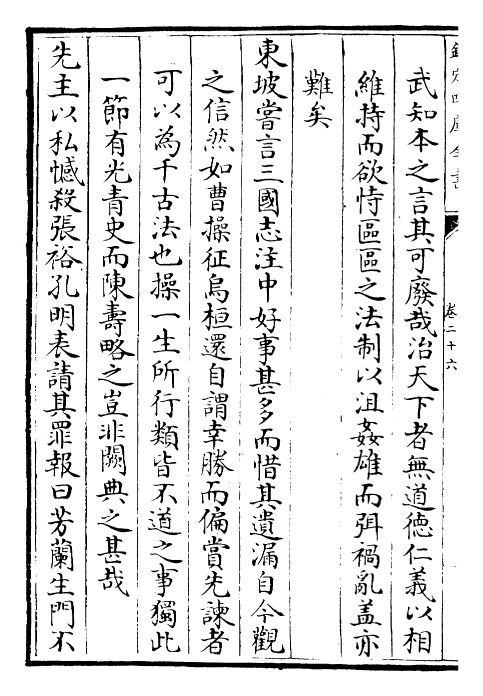 欽定四庫全書
卷二十六
武知本之言其可廢哉治天下者無道德仁義以相
維持而欲恃區區之法制以沮姦雄而弭禍亂盖亦
難矣
東坡嘗言三國志注中好事甚多而惜其遺漏自今觀
之信然如曹操征烏桓還自謂幸勝而偏賞先諫者
可以為千古法也操一生所行類皆不道之事獨此
一節有光青史而陳壽略之豈非闕典之甚哉
先主以私憾殺張裕孔明表請其罪報曰芳蘭生門不